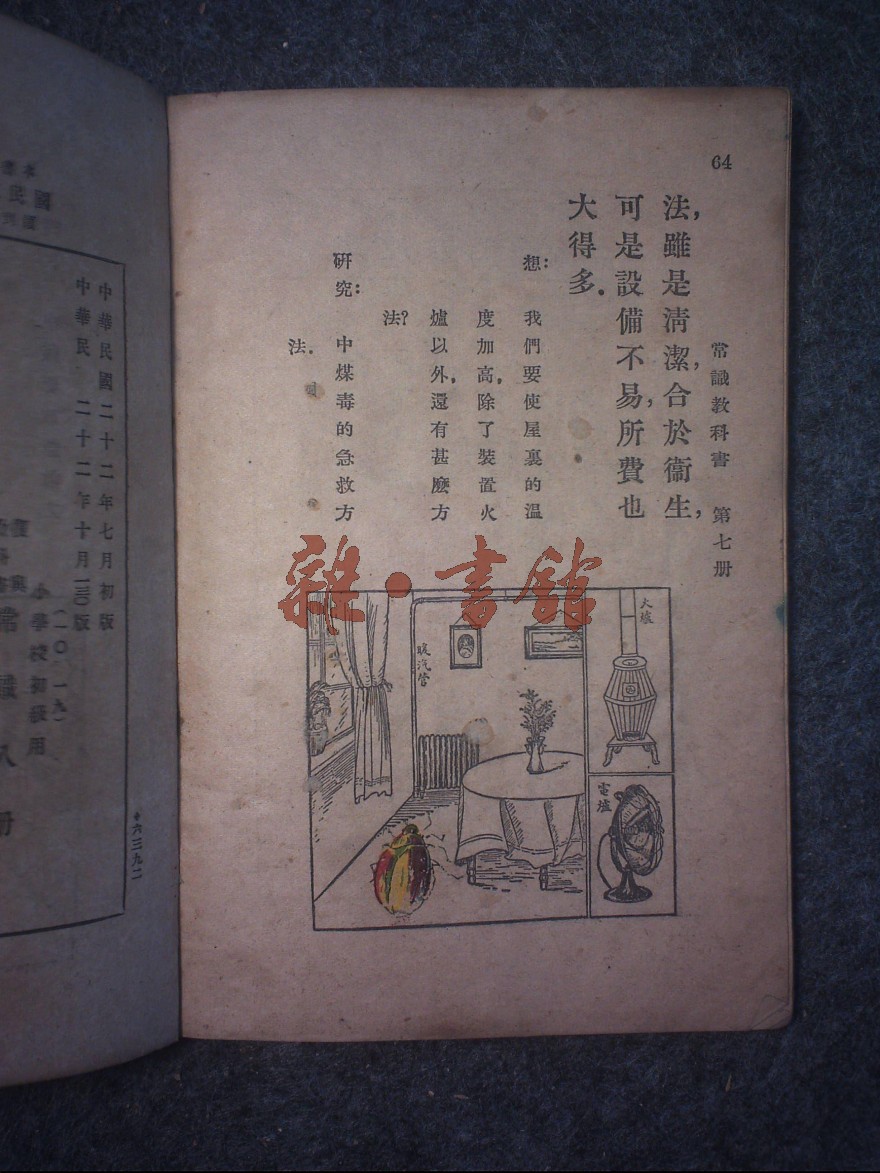 64
常識教科書 第七册
法,雖是淸潔,合於衞生,
可是設備不易,所費也
大得多.
想:我們要使屋裏的溫
度加高,除了裝置火
爐以外,還有甚麽方
法?
研究:中煤毒的急救方
法.
火爐
暖汽管
電爐
雜·書館
中華民國二十二年七月初版
中華民 二十二年十月一三〇版
(一〇一九)
小學校初級用
六三九二